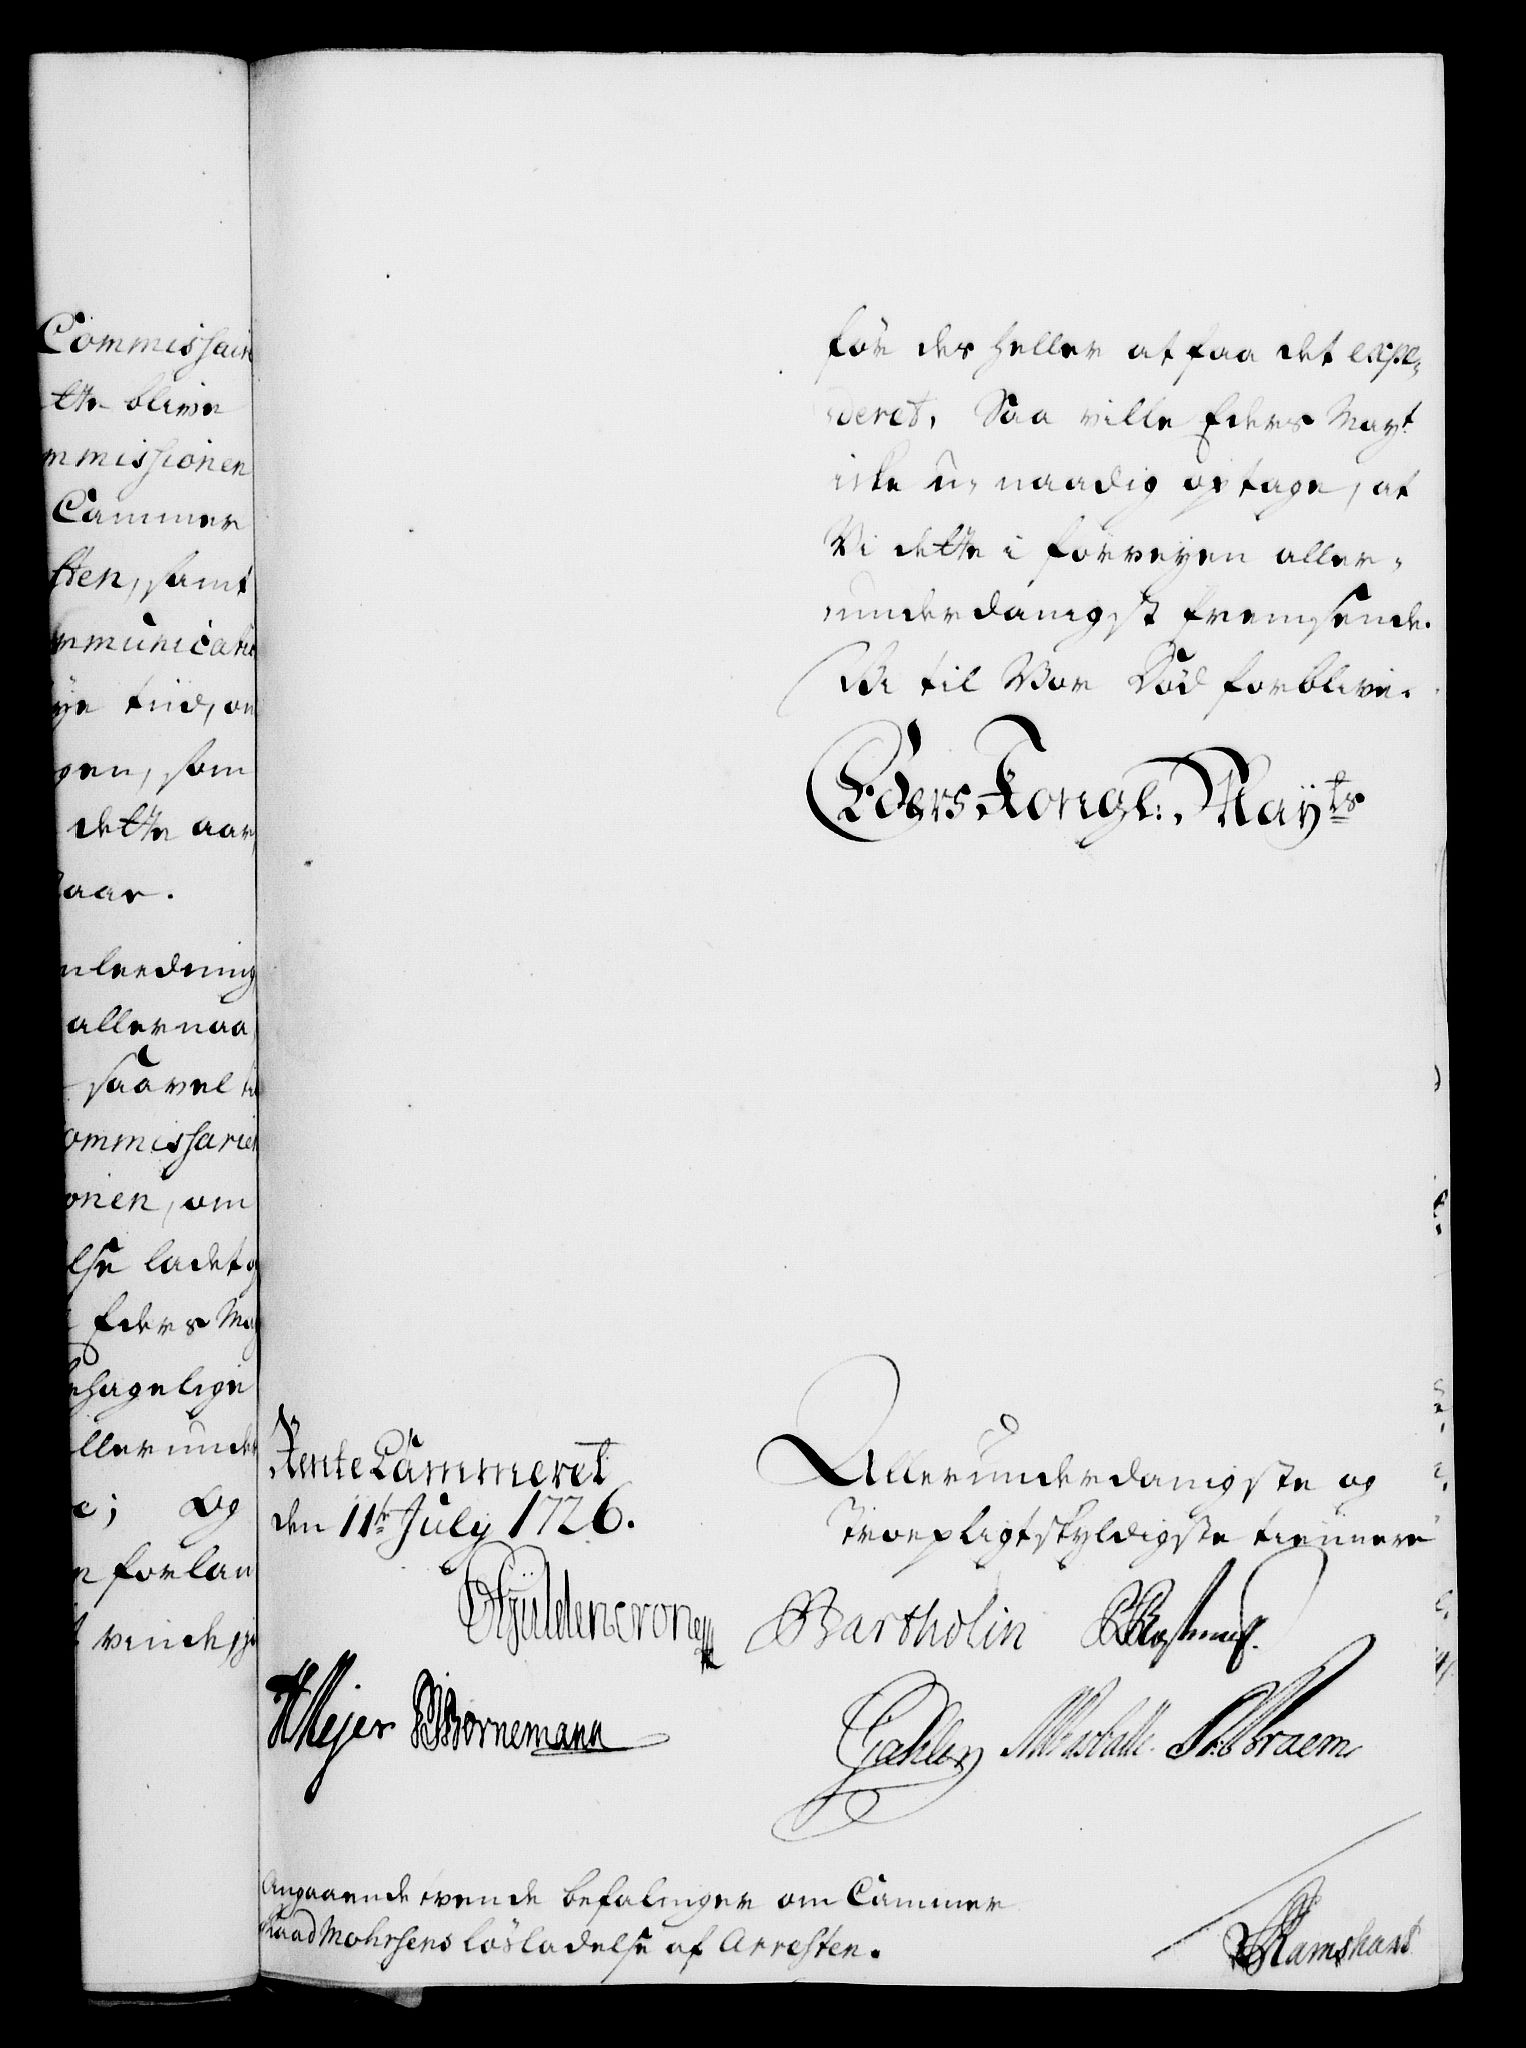 Commissair
tte blive
mmissionen
Cammer
tten, samt
mmunicatio
ye tiid, om
gen, som
dette aar,
aar.
nleedning
allernaa
saavel
ommissariet
onen, om
lse ladet
Eders May
ehagelige
llerunder
e; Og
forlan
vende
før des heller at faa det expe„
deret, Saa ville Eders Mayt
icke u„naadig optage, at
Vi dette i forveyen aller„
underdanigst fremsende.
Vi til Vor Død forblive.
Eders Kongl: Mayts
RenteCammeret
den 11te July 1726.
Allerunderdanigste og
Troepligtskyldigste tiennere
Gyldencrone
Bartholin
HMejer
Bornemann
St: Braem
Angaaende tvende befalinger om Cammer
Raad Mohrsens løsladelse af Arresten.
Ramshart